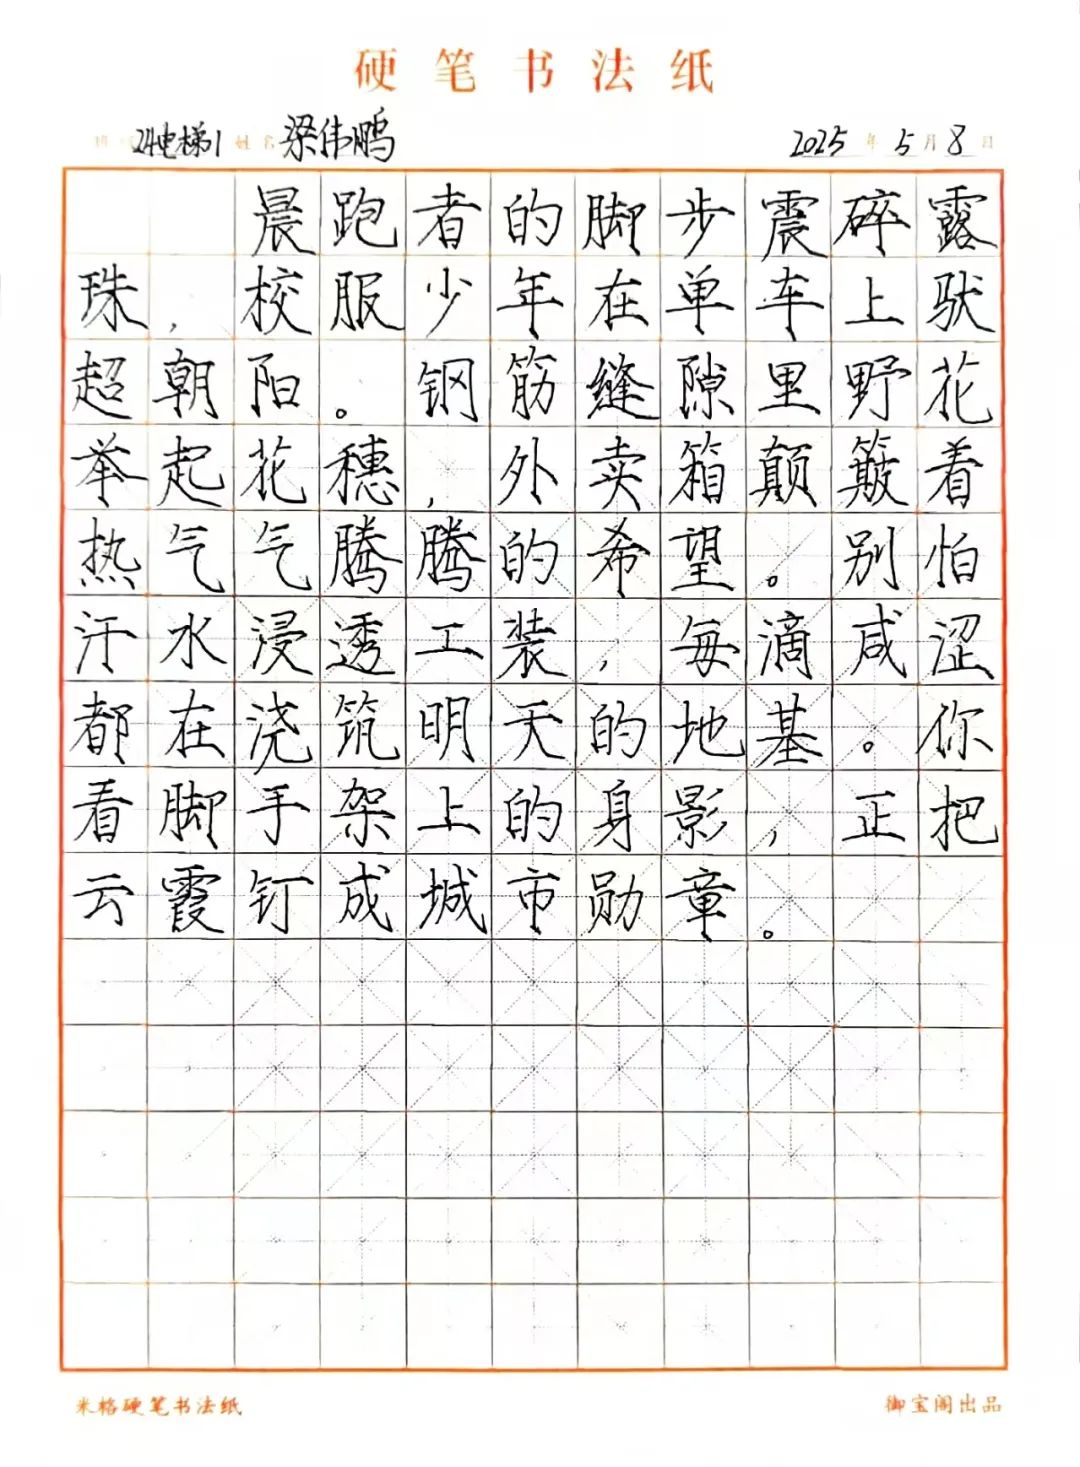 硬笔书法纸
班级 24电梯1 姓名 梁伟鹏 2025年5月8日
晨跑者的脚步震碎露
珠，校服少年在单车上驮
超朝阳。钢筋缝隙里野花
举起花穗，外卖箱颠簸着
热气气腾腾的希望。别怕
汗水浸透工装，每滴咸涩
都在浇筑明天的地基。你
看脚手架上的身影，正把
云霞钉成城市勋章。
米格硬笔书法纸 御宝阁出品